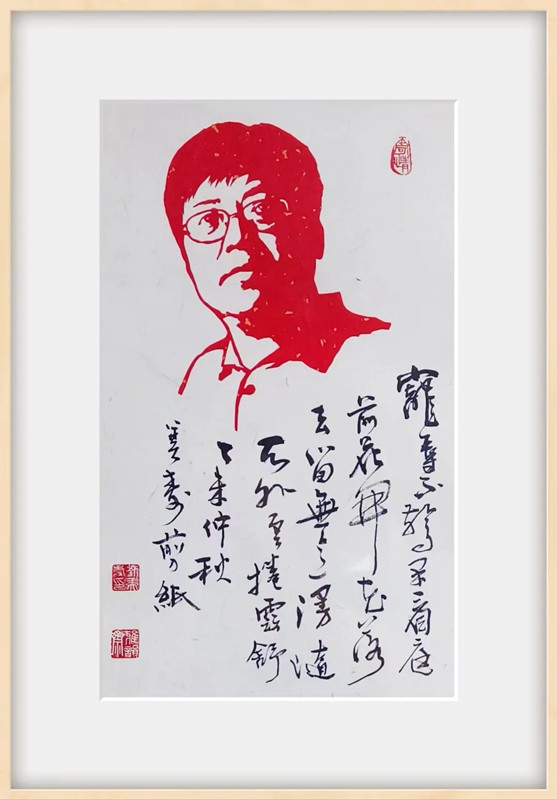 寵辱不驚閑看庭
前花開花落
去留無意漫隨
天外雲捲雲舒
未仲秋
壽剪紙